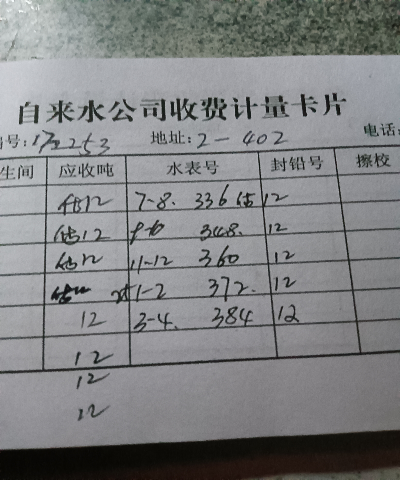 自来水公司收费计量卡片
号: 253 地址: 2-402 电话:
生间 应收吨 水表号 封铅号 擦校
估12 7-8. 336 估 12
估12 9-10 348. 12
估12 11-12 360 12
1-2 372. 12
12 3-4. 384 12
12
12
12